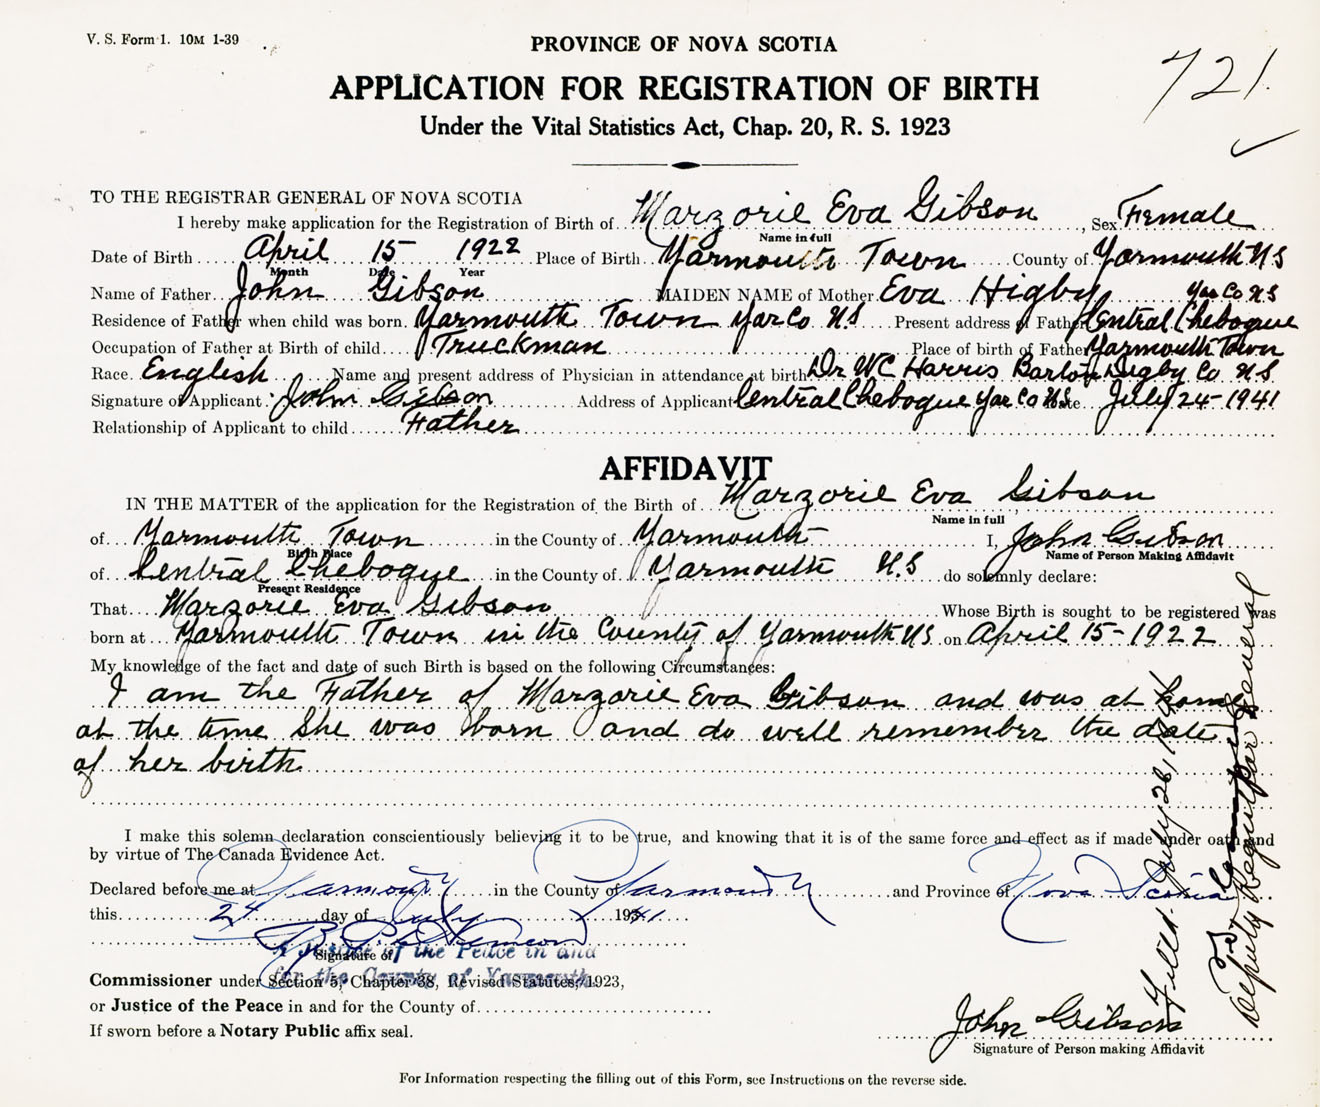 V. S. Form 1. 10M 1-39
PROVINCE OF NOVA SCOTIA
721.
APPLICATION FOR REGISTRATION OF BIRTH
Under the Vital Statistics Act, Chap. 20, R. S. 1923
TO THE REGISTRAR GENERAL OF NOVA SCOTIA
I hereby make application for the Registration of Birth of Marzorie Eva Gibson, Sex Female
Name in full
Date of Birth April 15 1922 Place of Birth Yarmouth Town County of Yarmouth N S
Month Date Year
Name of Father John Gibson MAIDEN NAME of Mother Eva Higby Yar Co N S
Residence of Father when child was born. Yarmouth Town Yar Co N S Present address of Father Central Chebogue
Occupation of Father at Birth of child Truckman Place of birth of Father Yarmouth Town
Race. English Name and present address of Physician in attendance at birth Dr W C Harris Barton Digby Co N S
Signature of Applicant John Gibson Address of Applicant Central Chebogue Yar Co N S Date July 24-1941
Relationship of Applicant to child Father
AFFIDAVIT
IN THE MATTER of the application for the Registration of the Birth of Marzorie Eva Gibson
Name in full
of Yarmouth Town in the County of Yarmouth I, John Gibson
Birth Place Name of Person Making Affidavit
of Central Chebogue in the County of Yarmouth N.S do solemnly declare:
Present Residence
That Marzorie Eva Gibson Whose Birth is sought to be registered was
born at Yarmouth Town in the County of Yarmouth N S on April 15-1922
My knowledge of the fact and date of such Birth is based on the following Circumstances:
I am the Father of Marzorie Eva Gibson and was at home
at the time She was born and do well remember the date
of her birth
I make this solemn declaration conscientiously believing it to be true, and knowing that it is of the same force and effect as if made under oath and
by virtue of The Canada Evidence Act.
Declared before me at Yarmouth in the County of Yarmouth and Province of Nova Scotia
this 24 day of July 1941
Signature of
A Justice of the Peace in and
for the County of Yarmouth
Commissioner under Section 5, Chapter 38, Revised Statutes, 1923,
or Justice of the Peace in and for the County of
If sworn before a Notary Public affix seal.
John Gibson
Signature of Person making Affidavit
Filed July 28, 1941
Deputy Registrar General
For Information respecting the filling out of this Form, see Instructions on the reverse side.